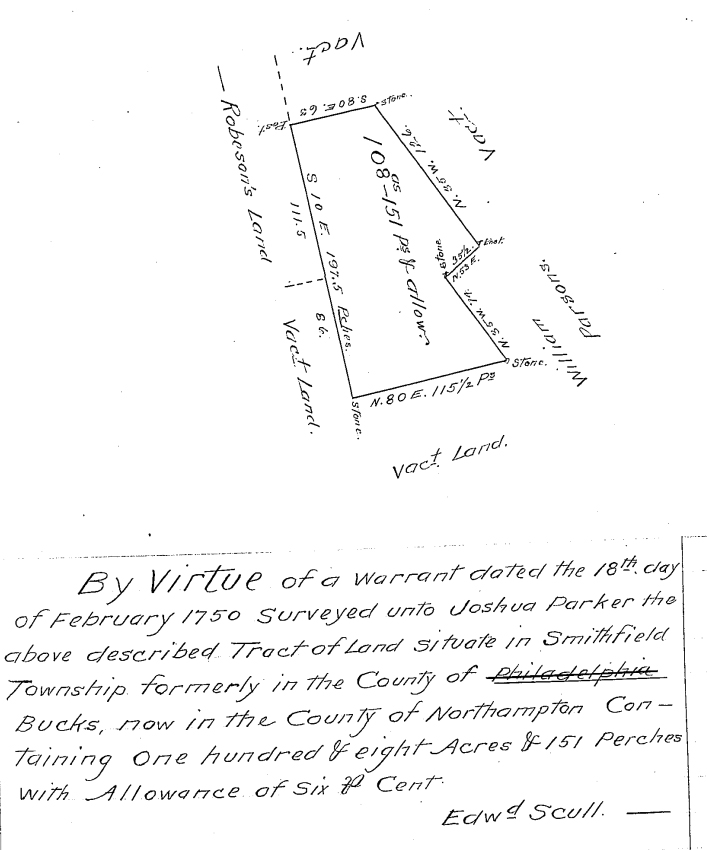 Vact.
S. 80 E. 63
Stone.
Post.
Vact.
N. 35 W. 126.
— Robeson's Land
111.5
S 10 E. 197.5 Pches.
86.
as
108–151 Ps & allow.
Stone
35½.
N. 53 E.
N. 35 W. 72.
William
Parsons.
Stone.
Vact. Land.
N. 80 E. 115½ Ps
Stone.
Vact. Land.
By Virtue of a Warrant dated the 18th. day
of February 1750 Surveyed unto Joshua Parker the
above described Tract of Land Situate in Smithfield
Township formerly in the County of Philadelphia
Bucks, now in the County of Northampton Con–
taining One hundred & eight Acres & 151 Perches
with Allowance of Six ⅌ Cent.
Edwd Scull. —